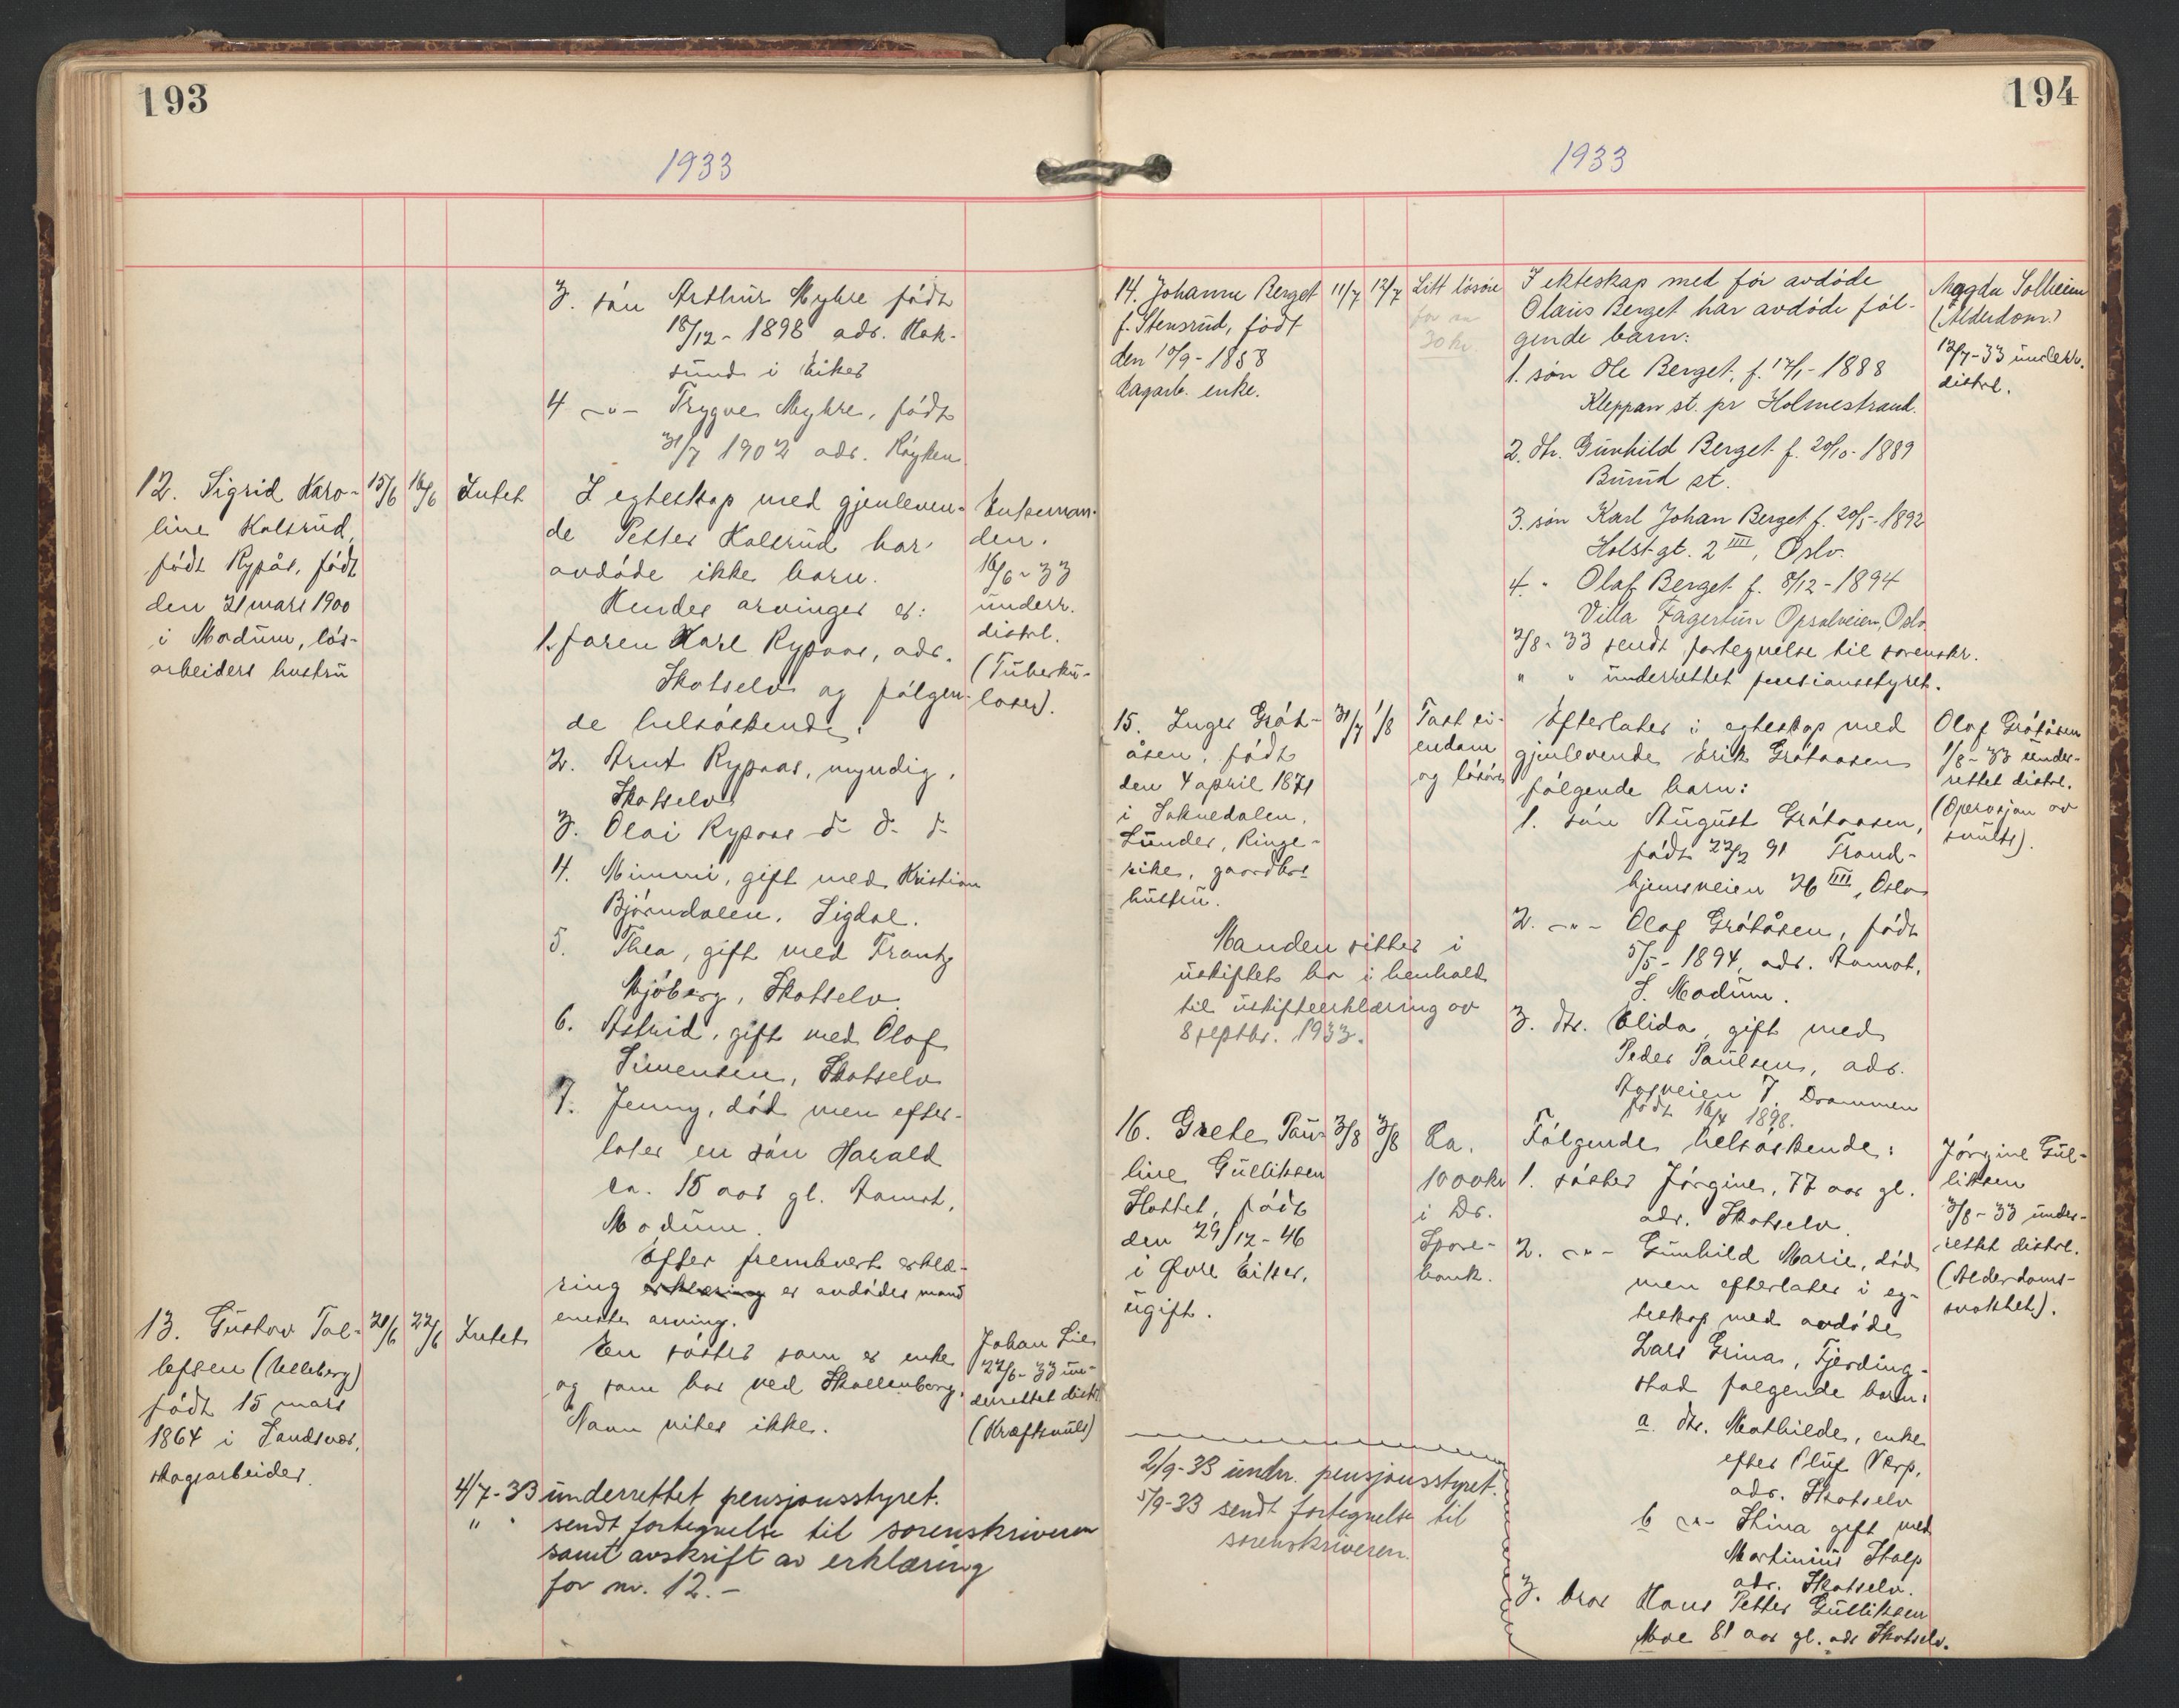 193
1933
3. søn Arthur Myhre født
18/12 - 1898 adr. Hok-
sund i Eiker
4 -"- Trygve Myhre, født
31/7 1902 adr. Røyken
12. Sigrid Karo-
line Kolsrud,
født Rypås, født
den 21 mars 1900
i Modum, løs-
arbeiders hustru
15/6
16/6
Intet
I egteskap med gjenleven-
de Petter Kolsrud har
avdøde ikke barn.
Hendes arvinger er:
1. faren Karl Rypaas, adr.
Skotselv og følgen-
de helsøskende:
2. Arnt Rypaas, myndig,
Skotselv
3. Olai Rypaas d- d- d-
4. Mimmi, gift med Kristian
Bjørndalen, Sigdal.
5. Thea, gift med Frantz
Mjøberg, Skotselv
6. Astrid, gift med Olaf
Simensen, Skotselv
7. Jenny, død men efter-
later en søn Harald
ca. 15 aar gl. Aamot,
Modum.
Efter frembært erklæ-
ring erklæring er avdødes mand
eneste arving.
Enkeman-
den.
16/6 - 33
underr.
distrl.
(Tuberku-
loser).
13. Gustav Tol-
lefsen (Ulleberg)
født 15 mars
1864 i Sandsvær,
skogsarbeider.
21/6
22/6
Intet
En søster som er enke
og som bor ved Skollenborg.
Navn vites ikke.
Johan Lie
22/6 - 33 un-
derrettet distr.
(Kræftsvulst)
4/7 - 33 underrettet pensjonsstyret.
" " sendt fortegnelse til sorenskriveren
samt avskrift av erklæring
for nr. 12. -
194
1933
14. Johanne Berget
f. Stensrud, født
den 10/9 - 1858
dagarb. enke.
11/7
12/7
Litt løsøre
for ca
30 kr
I ekteskap med før avdøde
Olaus Berget har avdøde føl-
gende barn:
1. søn Ole Berget, f. 17/1 - 1888
Kleppan st. pr Holmestrand.
2. dtr. Gunhild Berget f. 20/10 - 1889
Burud st.
3. søn Karl Johan Berget f. 20/5 - 1892
Holst gt. 2 IIII, Oslo.
4. " Olaf Berget f. 8/12 - 1894
Villa Fagertun Opsalveien, Oslo
2/8 - 33 sendt fortegnelse til sorenskr.
" " underrettet pensionsstyret.
Magda Solheim
(Alderdom)
12/7 - 33 underr.
distrl.
15. Inger Gråt-
åsen, født
den 4 april 1871
i Soknedalen,
Lunder, Ringe-
rike, gaardbr.
hustru.
31/7
1/8
Fast ei-
endom
og løsøre
Efterlater i egteskap med
gjenlevende Erik Gråtaasen
følgende barn:
1. søn August Gråtaasen,
født 22/2 91 Trond-
hjemsveien 26 IIII, Oslo
2. -"- Olaf Gråtåsen, født
5/5 - 1894, adr. Aamot,
S. Modum.
3. dtr. Elida, gift med
Peder Paulsen, adr.
Aasveien 7. Drammen
født 16/4 1898.
Olaf Gråtåsen
1/8 - 33 under-
rettet distrl.
(Operasjon av
svulst).
Manden sitter i
uskiftet bo i henhold
til uskifteerklæring av
8 septbr. 1933.
16. Grete Pau-
line Gulliksen
Hottet, født
den 29/12 - 46
i Øvre Eiker,
ugift.
3/8
3/8
Ca.
1000 kr
i Dr.
Spare-
bank.
Følgende helsøskende:
1. søster Jørgine, 77 aar gl.
adr. Skotselv
2. -"- Gunhild Marie, død
men efterlater i eg-
teskap med avdøde
Lars Grina, Fjerding-
stad følgende barn:
a. dtr. Mathilde, enke
efter Oluf Værp,
adr. Skotselv
b -"- Stina gift med
Martinius Stalp
adr. Skotselv.
3. bror Hans Petter Gulliksen
Moe 81 aar gl. adr Skotselv.
Jørgine Gul-
liksen
3/8 - 33 under-
rettet distrl.
(Alderdoms-
svakhet).
2/9 - 33 underr. pensjonsstyret.
5/9 - 33 sendt fortegnelse til
sorenskriveren.